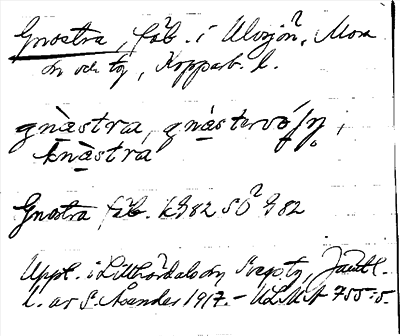 Gnostra, fäb. i Älvsjön, Mora
sn och tg, Kopparb. l.
gnàstra, gnàstərvǫ́ʃŋ,
knàstra
Gnostra fäb. K982 SÖ 982
Uppt. i Lillhärdals sn, Svegs tg, Jämtl.
l. av S. Ásander 1917. – ULMA 755:5.